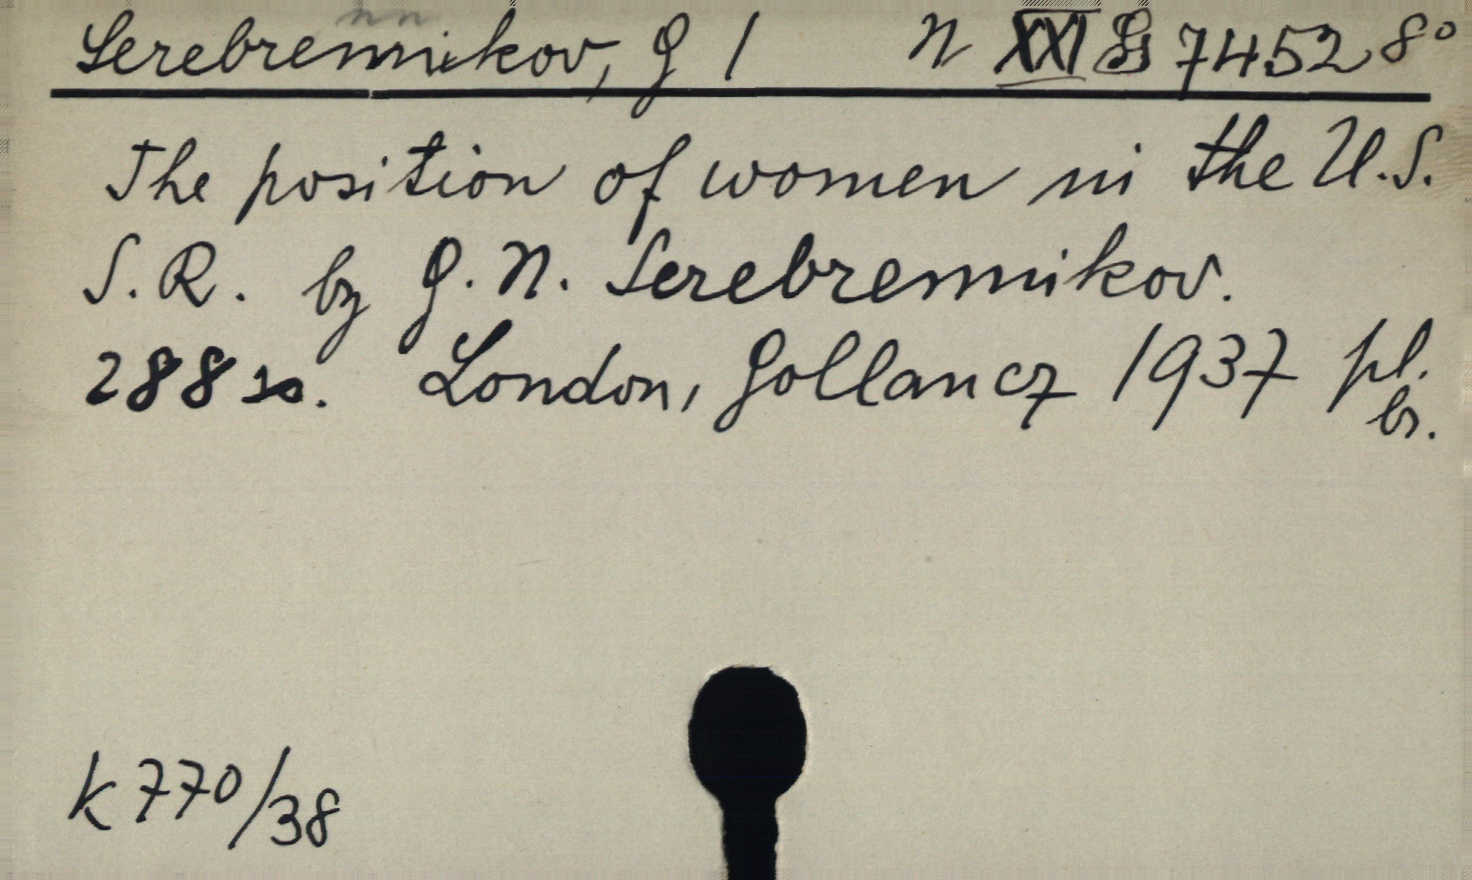 nn
Serebrennikov, G / N XXI 7452 8°
The position of women in the U.S.
S.R. by G. N. Serebrennikov.
288 s. London, Gollancz 1937 pl.
br.
K 770/38